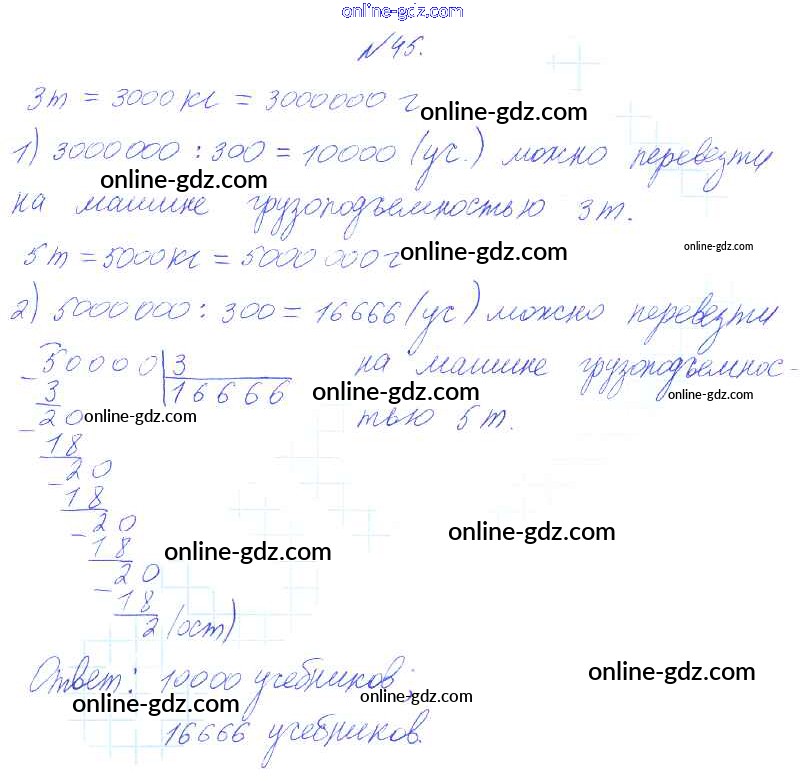 online-gdz.com
№45.
3т = 3000 кг = 3000000 г
online-gdz.com
1) 3000 000 : 300 = 10000 (уч.) можно перевезти
online-gdz.com
на машине грузоподъемностью 3т.
5т = 5000 кг = 5000 000 г
online-gdz.com
online-gdz.com
2) 5000 000 : 300 = 16666 (уч) можно перевезти
50000 3
на машине грузоподъемнос-
- 3 16666
online-gdz.com
online-gdz.com
- 20
online-gdz.com
тью 5т.
18
- 20
18
- 20
online-gdz.com
18
online-gdz.com
- 20
18
2 (ост)
Ответ: 10000 учебников;
online-gdz.com
online-gdz.com
online-gdz.com
16666 учебников.